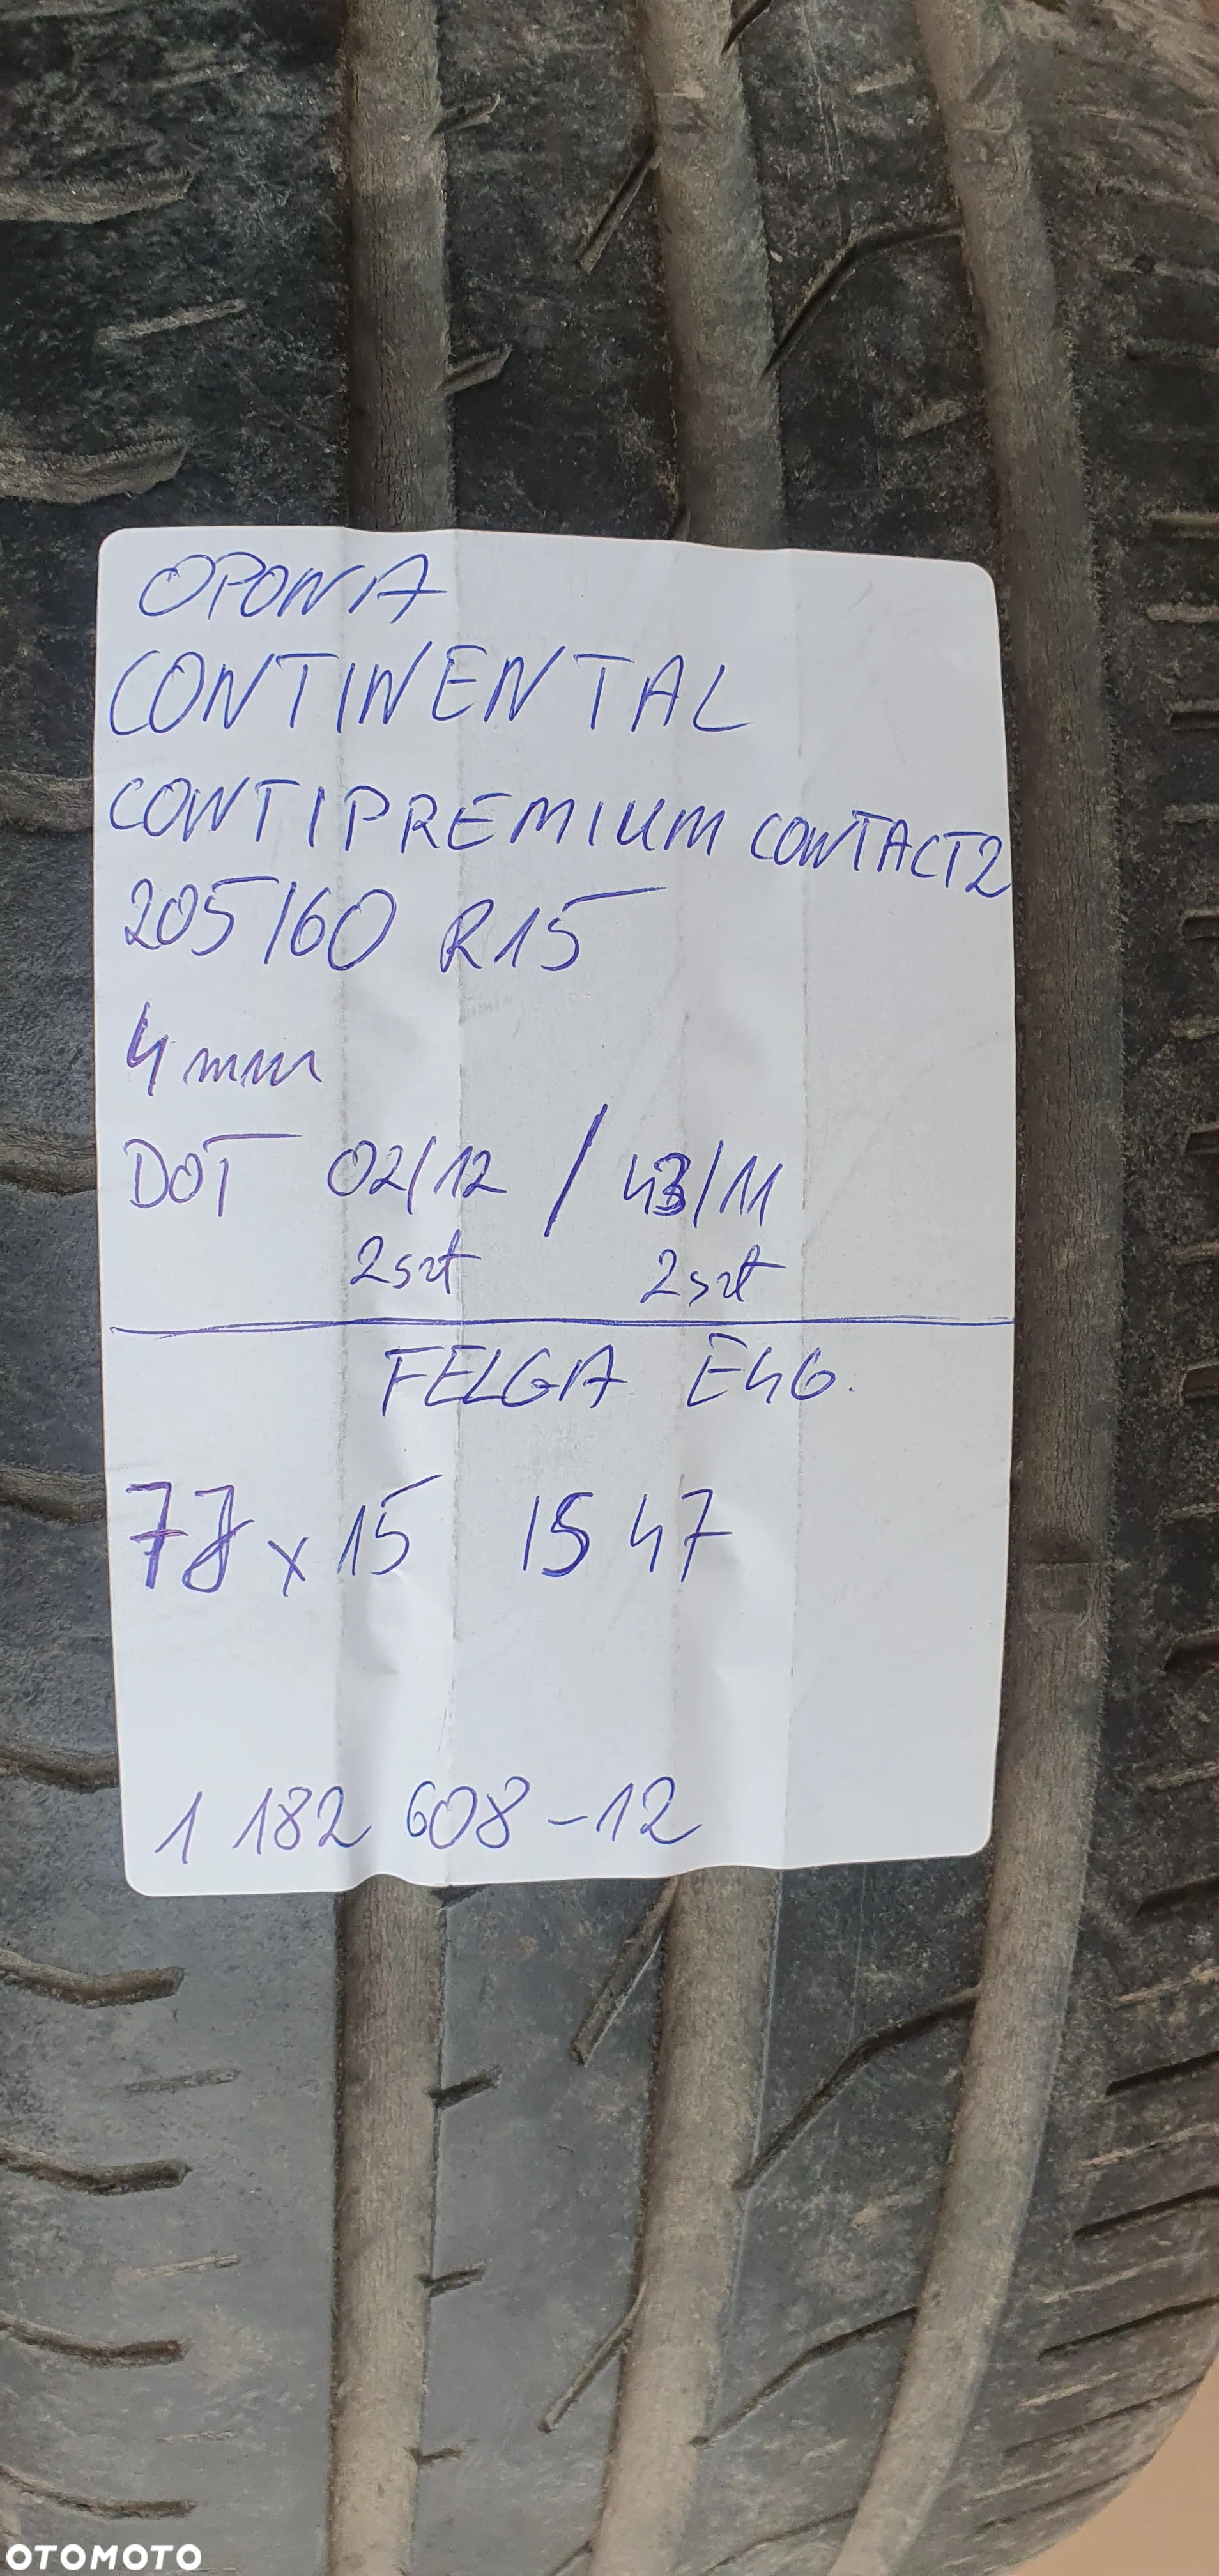 OPONA
CONTINENTAL
CONTIPREMIUM CONTACT2
205/60 R15
4 mm
DOT 02/12 / 43/11
2szt 2szt
FELGA E46.
7J x 15 IS 47
1 182 608-12
OTOMOTO